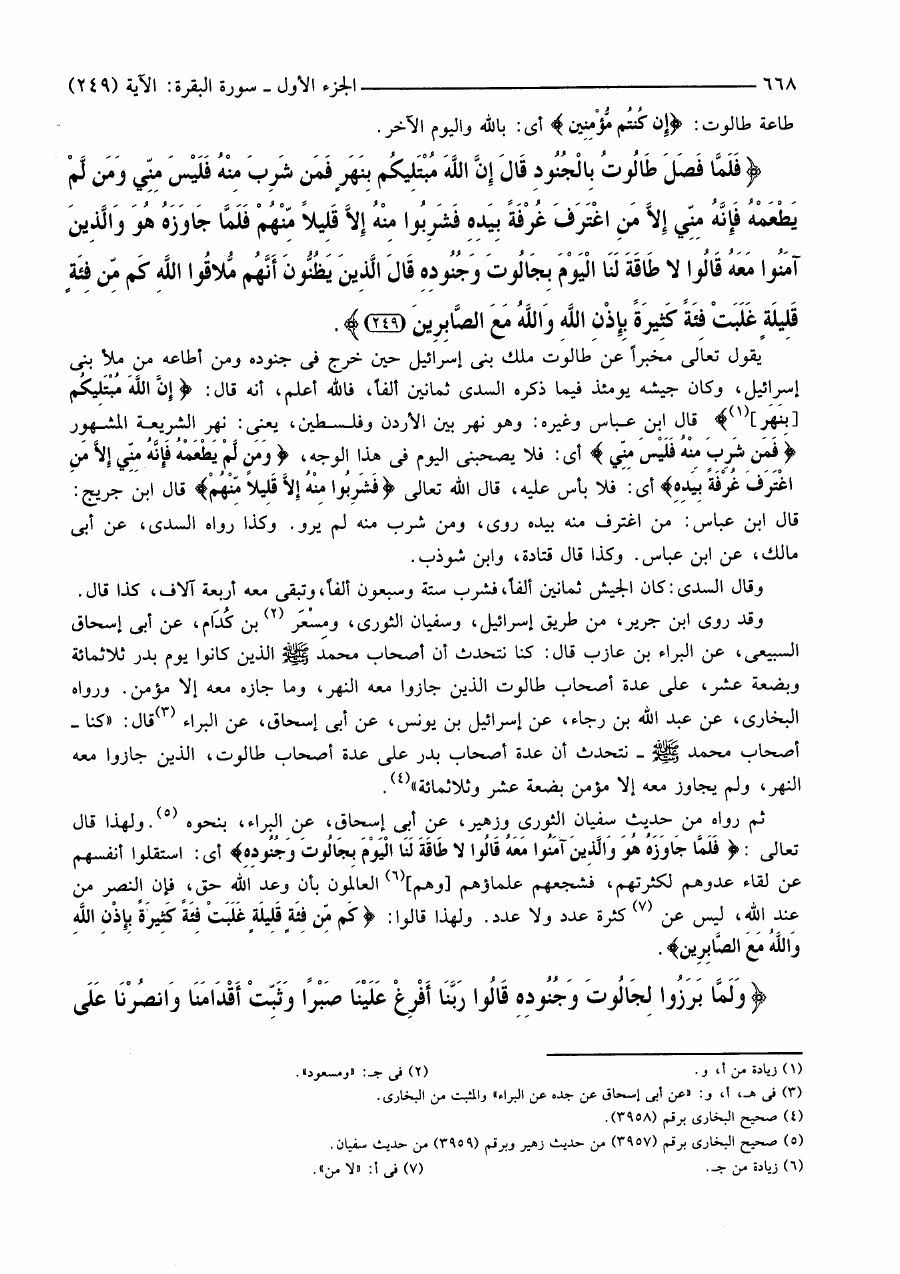 ٦٦٨ ــــــ الجزء الأول ـ سورة البقرة: الآية (٢٤٩)
طاعة طالوت: ﴿إِن كُنتُم مُّؤْمِنِين﴾ أى: بالله واليوم الآخر.
﴿ فَلَمَّا فَصَلَ طَالُوتُ بِالْجُنُودِ قَالَ إِنَّ اللَّهَ مُبْتَلِيكُم بِنَهَرٍ فَمَن شَرِبَ مِنْهُ فَلَيْسَ مِنِّي وَمَن لَّمْ
يَطْعَمْهُ فَإِنَّهُ مِنِّي إِلاَّ مَنِ اغْتَرَفَ غُرْفَةً بِيَدِهِ فَشَرِبُوا مِنْهُ إِلاَّ قَلِيلاً مِّنْهُمْ فَلَمَّا جَاوَزَهُ هُوَ وَالَّذِينَ
آمَنُوا مَعَهُ قَالُوا لا طَاقَةَ لَنَا الْيَوْمَ بِجَالُوتَ وَجُنُودِهِ قَالَ الَّذِينَ يَظُنُّونَ أَنَّهُم مُّلاقُوا اللَّهِ كَم مِّن فِئَةٍ
قَلِيلَةٍ غَلَبَتْ فِئَةً كَثِيرَةً بِإِذْنِ اللَّهِ وَاللَّهُ مَعَ الصَّابِرِينَ (٢٤٩)﴾.
يقول تعالى مخبراً عن طالوت ملك بنى إسرائيل حين خرج فى جنوده ومن أطاعه من ملأ بنى
إسرائيل، وكان جيشه يومئذ فيما ذكره السدى ثمانين ألفاً، فالله أعلم، أنه قال: ﴿ إِنَّ اللَّهَ مُبْتَلِيكُم
[بِنَهَرٍ](١)﴾ قال ابن عباس وغيره: وهو نهر بين الأردن وفلسطين، يعنى: نهر الشريعة المشهور
﴿ فَمَن شَرِبَ مِنْهُ فَلَيْسَ مِنِّي ﴾ أى: فلا يصحبنى اليوم فى هذا الوجه، ﴿ وَمَن لَّمْ يَطْعَمْهُ فَإِنَّهُ مِنِّي إِلاَّ مَنِ
اغْتَرَفَ غُرْفَةً بِيَدِهِ﴾ أى: فلا بأس عليه، قال الله تعالى ﴿فَشَرِبُوا مِنْهُ إِلاَّ قَلِيلاً مِّنْهُمْ﴾ قال ابن جريج:
قال ابن عباس: من اغترف منه بيده روى، ومن شرب منه لم يرو. وكذا رواه السدى، عن أبى
مالك، عن ابن عباس. وكذا قال قتادة، وابن شوذب.
وقال السدى: كان الجيش ثمانين ألفاً، فشرب ستة وسبعون ألفاً، وتبقى معه أربعة آلاف، كذا قال.
وقد روى ابن جرير، من طريق إسرائيل، وسفيان الثورى، ومِسْعَر (٢) بن كُدَام، عن أبى إسحاق
السبيعى، عن البراء بن عازب قال: كنا نتحدث أن أصحاب محمد ﷺ الذين كانوا يوم بدر ثلاثمائة
وبضعة عشر، على عدة أصحاب طالوت الذين جازوا معه النهر، وما جازه معه إلا مؤمن. ورواه
البخارى، عن عبد الله بن رجاء، عن إسرائيل بن يونس، عن أبى إسحاق، عن البراء (٣)قال: «كنا ـ
أصحاب محمد ﷺ ـ نتحدث أن عدة أصحاب بدر على عدة أصحاب طالوت، الذين جازوا معه
النهر، ولم يجاوز معه إلا مؤمن بضعة عشر وثلاثمائة»(٤).
ثم رواه من حديث سفيان الثورى وزهير، عن أبى إسحاق، عن البراء، بنحوه (٥). ولهذا قال
تعالى :﴿ فَلَمَّا جَاوَزَهُ هُوَ وَالَّذِينَ آمَنُوا مَعَهُ قَالُوا لا طَاقَةَ لَنَا الْيَوْمَ بِجَالُوتَ وَجُنُودِهِ﴾ أى: استقلوا أنفسهم
عن لقاء عدوهم لكثرتهم، فشجعهم علماؤهم [وهم](٦) العالمون بأن وعد الله حق، فإن النصر من
عند الله، ليس عن (٧) كثرة عدد ولا عدد. ولهذا قالوا: ﴿ كَم مِّن فِئَةٍ قَلِيلَةٍ غَلَبَتْ فِئَةً كَثِيرَةً بِإِذْنِ اللَّهِ
وَاللَّهُ مَعَ الصَّابِرِين﴾.
﴿ وَلَمَّا بَرَزُوا لِجَالُوتَ وَجُنُودِهِ قَالُوا رَبَّنَا أَفْرِغْ عَلَيْنَا صَبْرًا وَثَبِّتْ أَقْدَامَنَا وَانصُرْنَا عَلَى
(١) زيادة من أ، و. (٢) فى جـ: «ومسعود».
(٣) فى هـ، أ، و: «عن أبى إسحاق عن جده عن البراء» والمثبت من البخارى.
(٤) صحيح البخارى برقم (٣٩٥٨).
(٥) صحيح البخارى برقم (٣٩٥٧) من حديث زهير وبرقم (٣٩٥٩) من حديث سفيان.
(٦) زيادة من جـ. (٧) فى أ: «لا من».